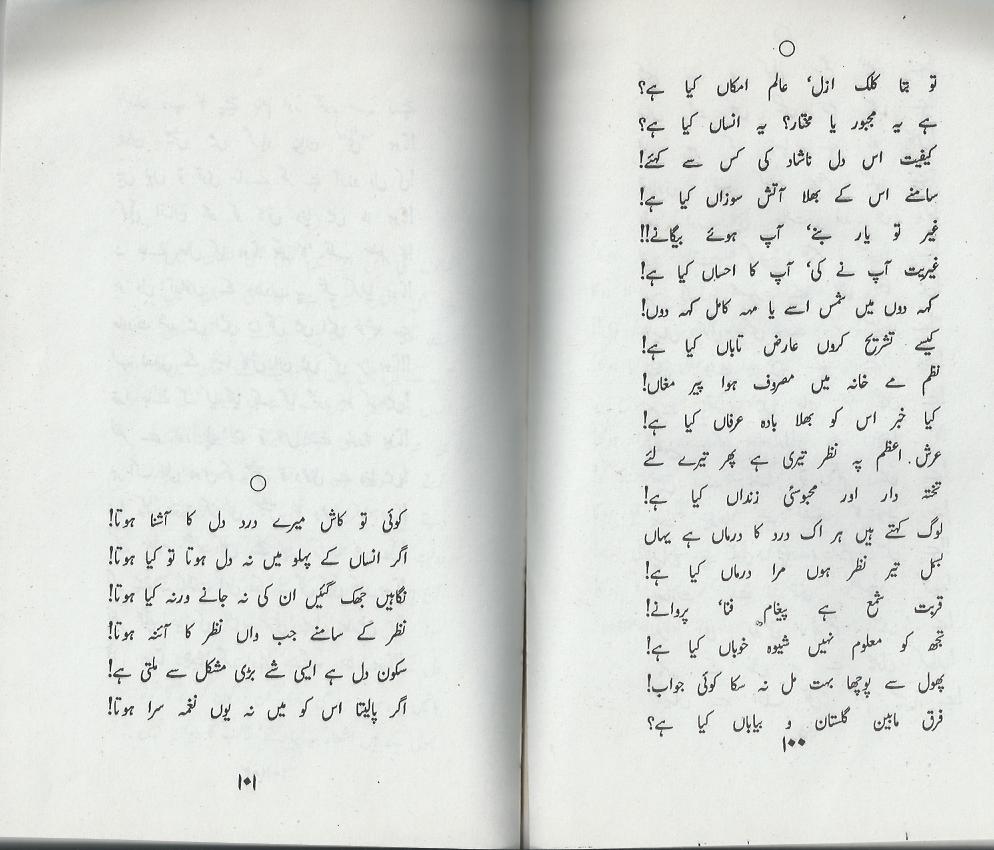 تو بتا کلک ازل‘ عالم امکاں کیا ہے؟
ہے یہ مجبور یا مختار؟ یہ انساں کیا ہے؟
کیفیت اس دل ناشاد کی کس سے کہئے!
سامنے اس کے بھلا آتش سوزاں کیا ہے!
غیر تو یار بنے‘ آپ ہوئے بیگانے!!
غیریت آپ نے کی‘ آپ کا احساں کیا ہے!
کہہ دوں میں شمس اسے یا مہہ کامل کہہ دوں!
کیسے تشریح کروں عارض تاباں کیا ہے!
نظم مے خانہ میں مصروف ہوا پیر مغاں!
کیا خبر اس کو بھلا بادہ عرفاں کیا ہے!
عرش اعظم پہ نظر تیری ہے پھر تیرے لئے
تختہ دار اور محبوسئی زنداں کیا ہے!
لوگ کہتے ہیں ہر اک درد کا درماں ہے یہاں
بسمل تیر نظر ہوں مرا درماں کیا ہے!
قربت شمع ہے پیغام فنا‘ پروانے!
تجھ کو معلوم نہیں شیوہ خوباں کیا ہے!
پھول سے پوچھا بہت مل نہ سکا کوئی جواب!
فرق مابین گلستان و بیاباں کیا ہے؟
۱۰۰
کوئی تو کاش میرے درد دل کا آشنا ہوتا!
اگر انساں کے پہلو میں نہ دل ہوتا تو کیا ہوتا!
نگاہیں جھک گئیں ان کی نہ جانے ورنہ کیا ہوتا!
نظر کے سامنے جب واں نظر کا آئنہ ہوتا!
سکون دل ہے ایسی شے بڑی مشکل سے ملتی ہے!
اگر پالیتا اس کو میں نہ یوں نغمہ سرا ہوتا!
۱۰۱